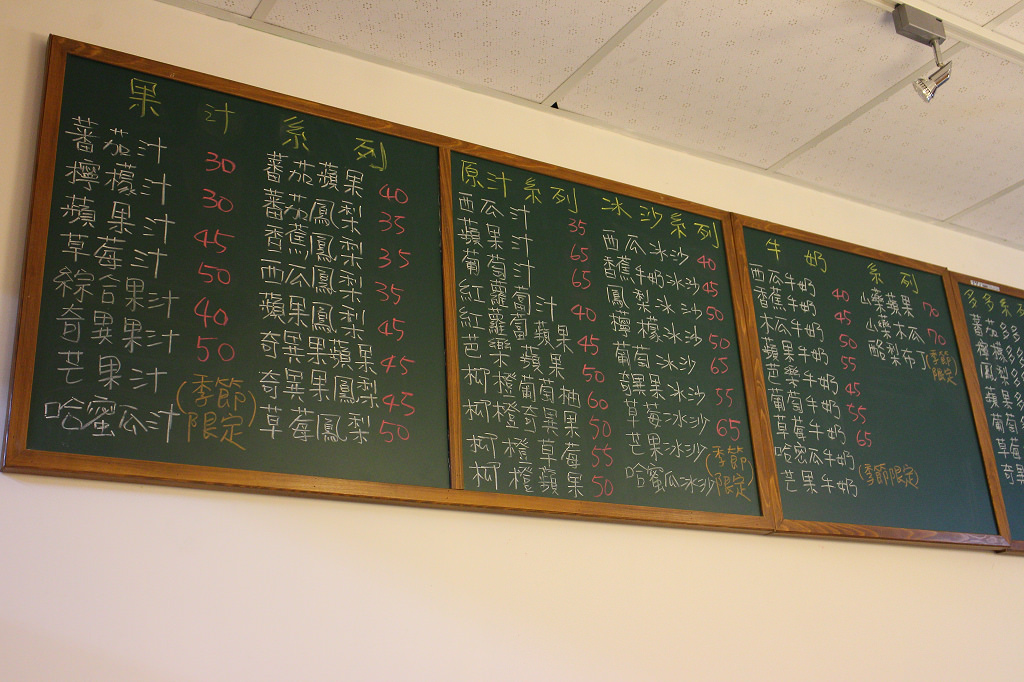 果汁系列
蕃茄汁 30
檸檬汁 30
蘋果汁 45
草莓汁 50
綜合果汁 40
奇異果汁 50
芒果汁
哈蜜瓜汁
(季節
限定)
蕃茄蘋果 40
蕃茄鳳梨 35
香蕉鳳梨 35
西瓜鳳梨 35
蘋果鳳梨 45
奇異果蘋果 45
奇異果鳳梨 45
草莓鳳梨 50
原汁系列
西瓜汁 35
蘋果汁 65
葡萄汁 65
紅蘿蔔汁 40
紅蘿蔔蘋果 45
芭樂蘋果 50
柯橙葡萄柚 60
柯橙奇異果 50
柯橙草莓 55
柯橙蘋果 50
冰沙系列
西瓜冰沙 40
香蕉牛奶冰沙 45
鳳梨冰沙 50
檸檬冰沙 50
葡萄冰沙 65
奇異果冰沙 55
草莓冰沙 65
芒果冰沙
哈蜜瓜冰沙
(季節
限定)
牛奶系列
西瓜牛奶 40
香蕉牛奶 45
木瓜牛奶 50
蘋果牛奶 55
芭樂牛奶 45
葡萄牛奶 55
草莓牛奶 65
哈密瓜牛奶
芒果牛奶 (季節限定)
山藥蘋果 70
山藥木瓜 70
酪梨布丁 (季節
限定)
多多系
蕃茄多
檸檬
鳳梨
蘋果
葡萄
草莓
奇異